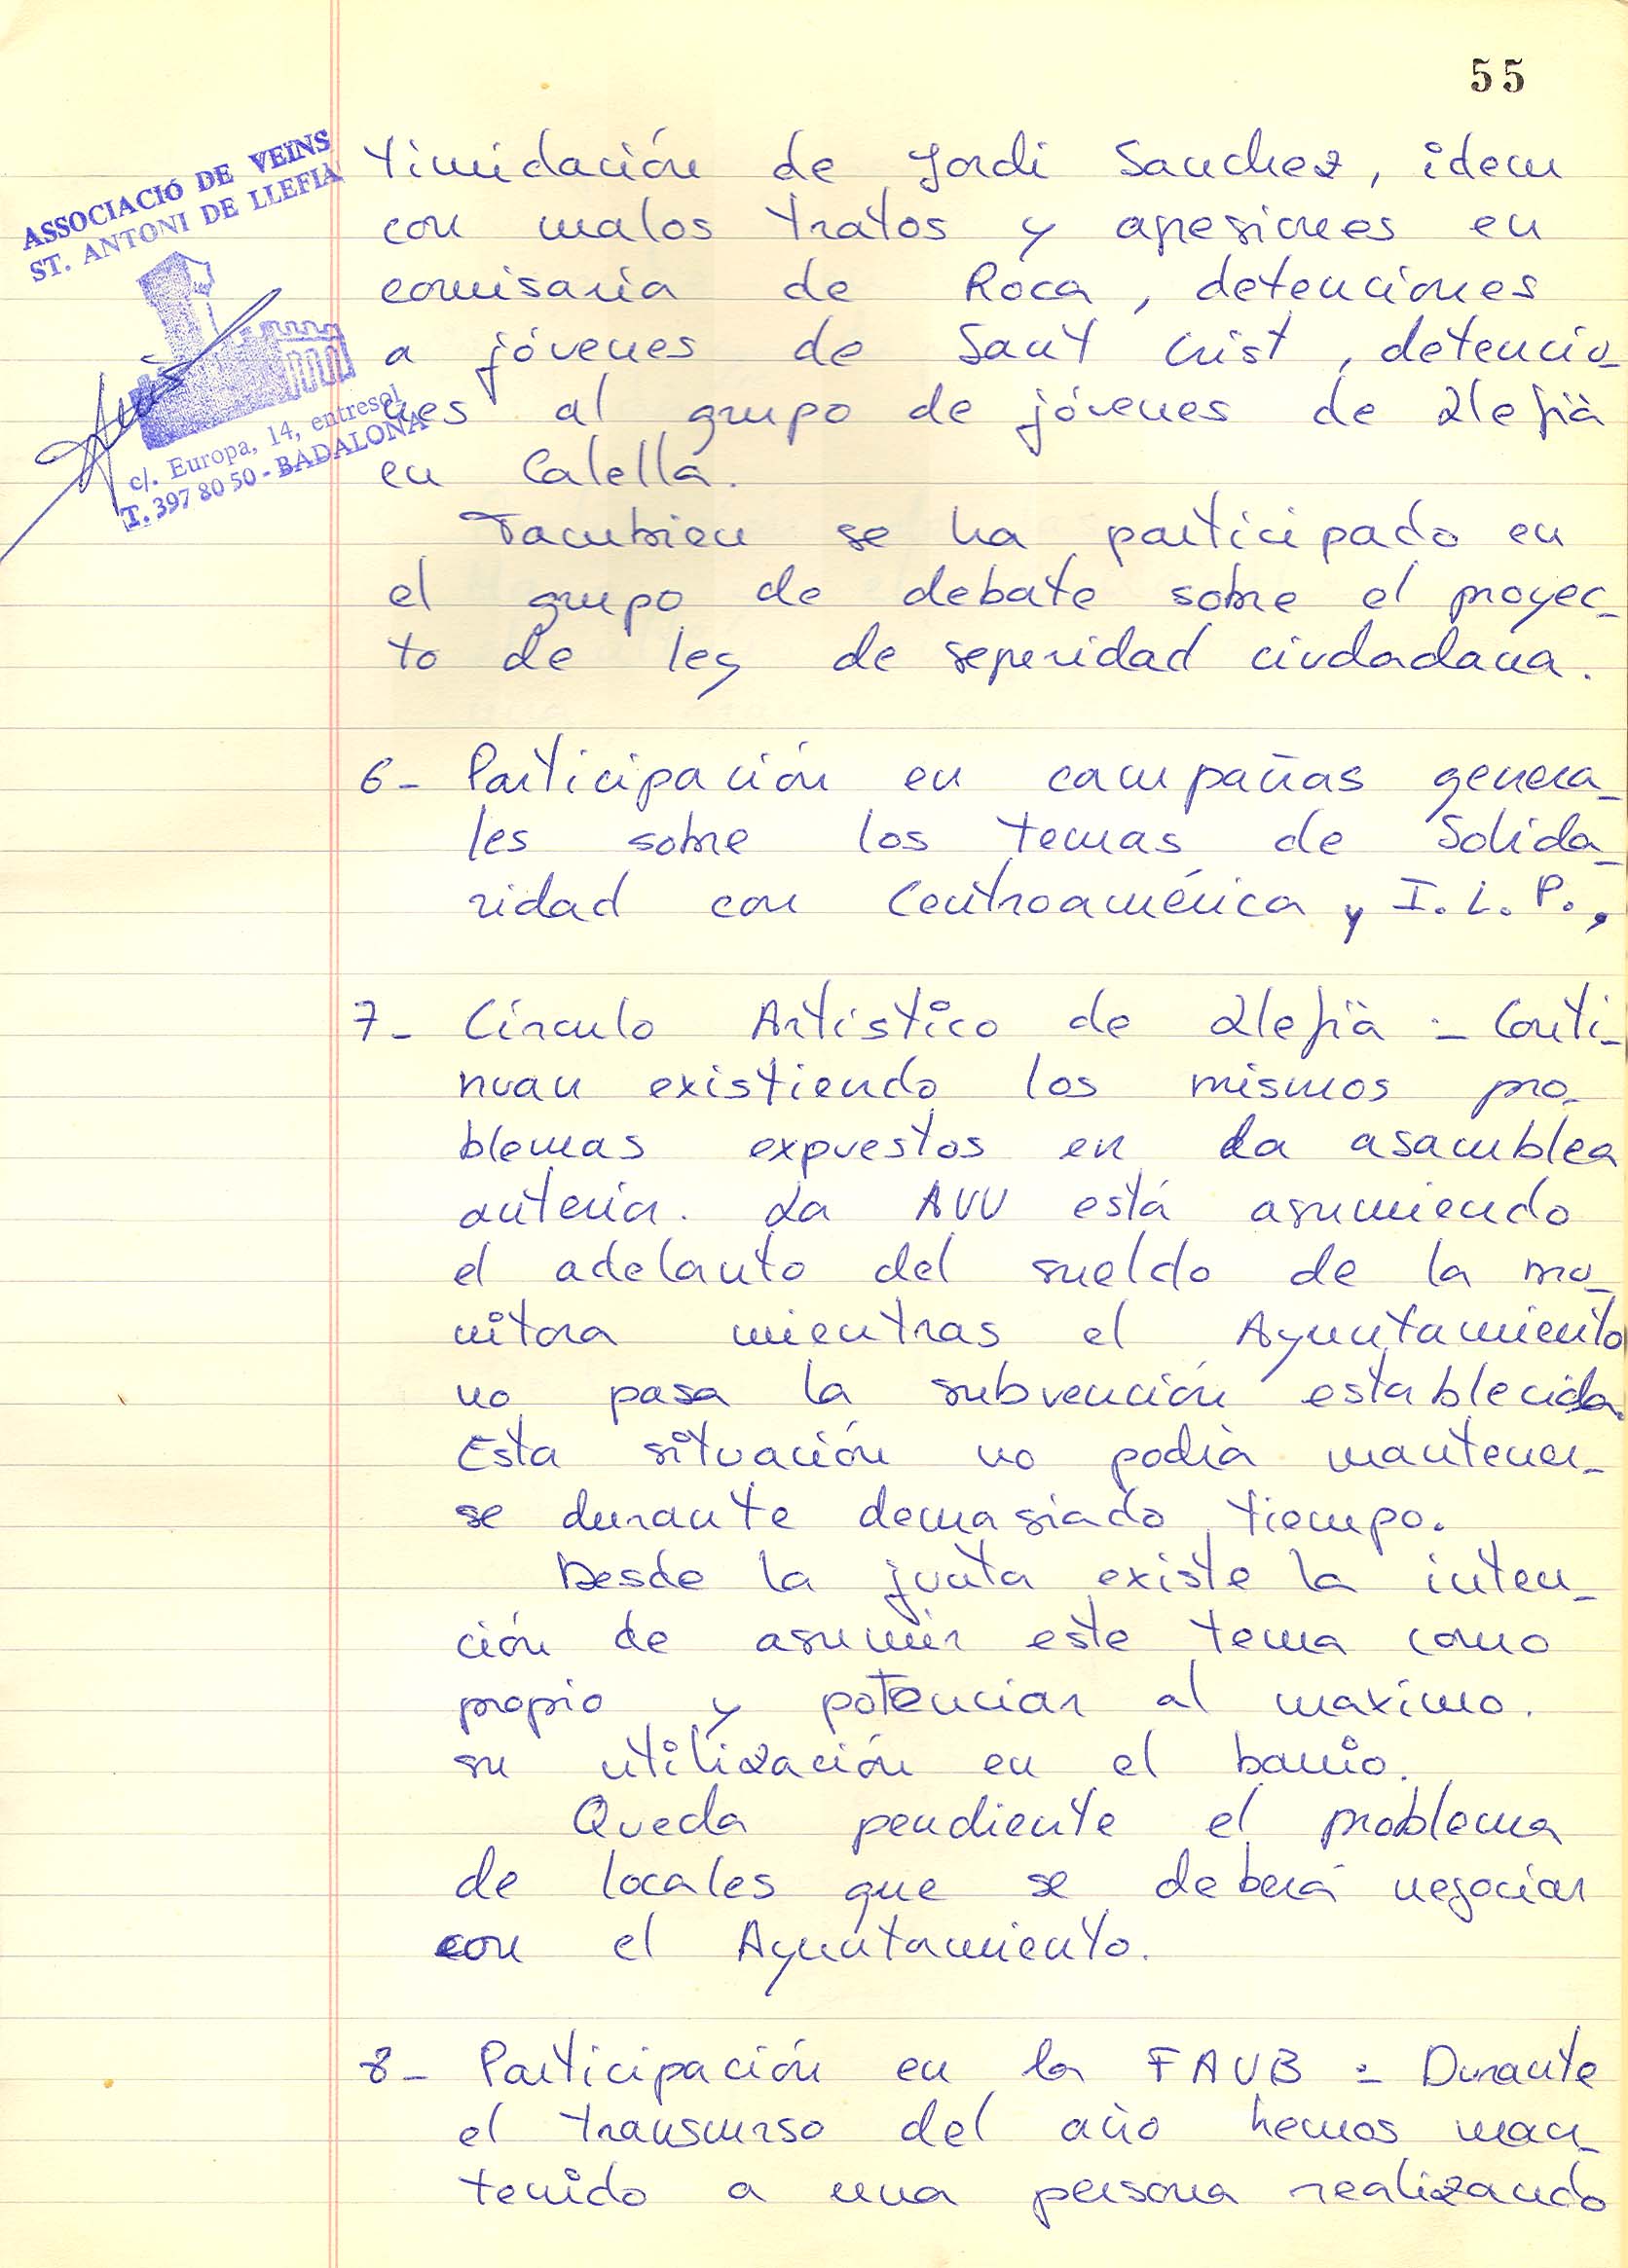 55
ASSOCIACIÓ DE VEINS
ST. ANTONI DE LLEFIA
c/. Europa, 14, entresol
T. 397 80 50 - BADALONA
timidación de Jordi Sanchez, idem
con malos tratos y apresiones en
comisaria de Roca, detenciones
a jóvenes de Sant Crist, detencio_
nes al grupo de jóvenes de Llefià
en Calella.
Tambien se ha participado en
el grupo de debate sobre el proyec_
to de ley de seguridad ciudadana.
6_ Participación en campañas genera_
les sobre los temas de Solida_
ridad con Centroamérica y I.L.P.,
7_ Círculo Artístico de Llefià :_ Conti_
nuan existiendo los mismos pro_
blemas expuestos en la asamblea
anterior. La AVV está asumiendo
el adelanto del sueldo de la mo_
nitora mientras el Ayuntamiento
no pasa la subvención establecida.
Esta situación no podrà mantener_
se durante demasiado tiempo.
Desde la junta existe la inten_
ción de asumir este tema como
propio y potenciar al maximo.
su utilización en el barrio.
Queda pendiente el problema
de locales que se deberá negociar
con el Ayuntamiento.
8_ Participación en la FAVB :_ Durante
el transcurso del año hemos man_
tenido a una persona realizando